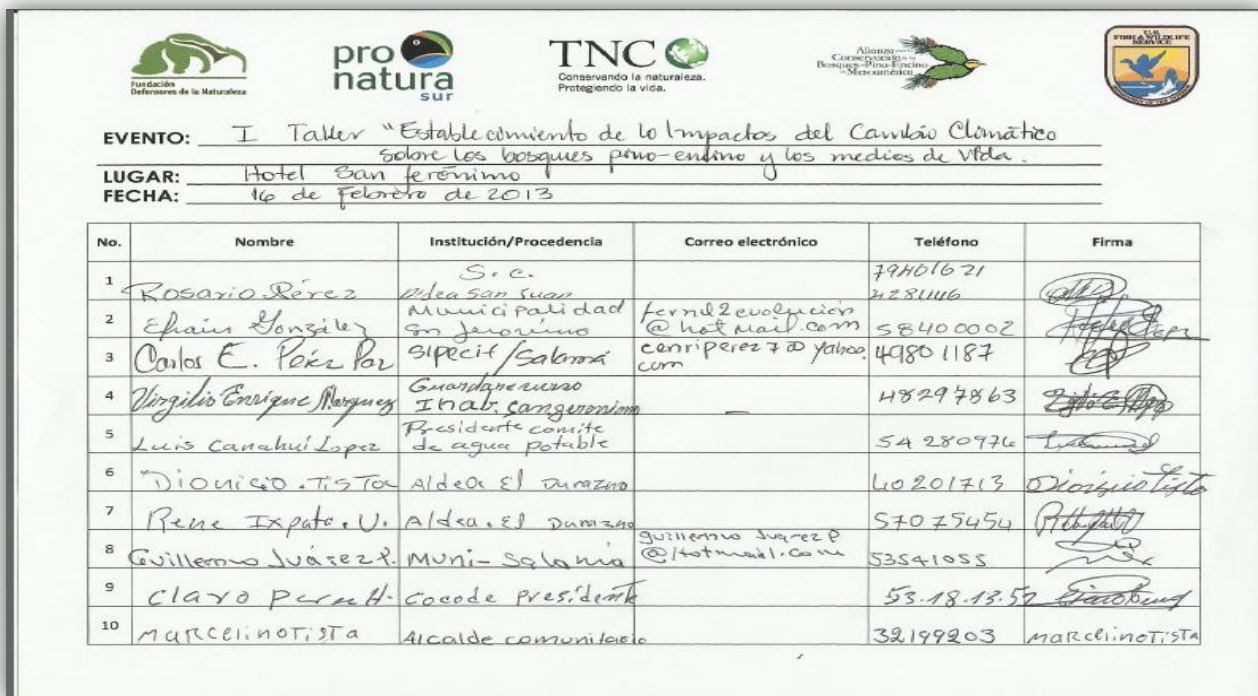 Fundación
Defensores de la Naturaleza
pro
natura
sur
TNC
Conservando la naturaleza.
Protegiendo la vida.
Alianza para la
Conservación de los
Bosques de Pino-Encino
de Mesoamérica
U.S.
FISH & WILDLIFE
SERVICE
EVENTO: I Taller "Establecimiento de lo Impactos del Cambio Climático
sobre los bosques pino-encino y los medios de Vida.
LUGAR: Hotel San Jerónimo
FECHA: 16 de Febrero de 2013
No. Nombre Institución/Procedencia Correo electrónico Teléfono Firma
1 Rosario Pérez S.C. Aldea San Juan 79401621 42811116
2 Efraín González Municipalidad Sn Jeronimo @hotmail.com 58400002
3 Carlos E. Pérez Paz Sipecif/Salamá cenriperez7@yahoo.com 49801187
4 Virgilio Enrique Marquez Inab. Sangeronimo — 48297863
5 Luis Canahuí Lopez Presidente comite de agua potable 54280976
6 Dionicio.Tista Aldea El Durazno 40201713 Dionisio Tista
7 Rene Ixpata.U. Aldea.El Durazno 57075454
8 Guillermo Juárez P. Muni-Salamá guillermo Juarez P @hotmail.com 53541055
9 Claro H. Cocode presidente 53.18.13.52
10 Marcelino Tista Alcalde comunitario 32199203 Marcelino Tista